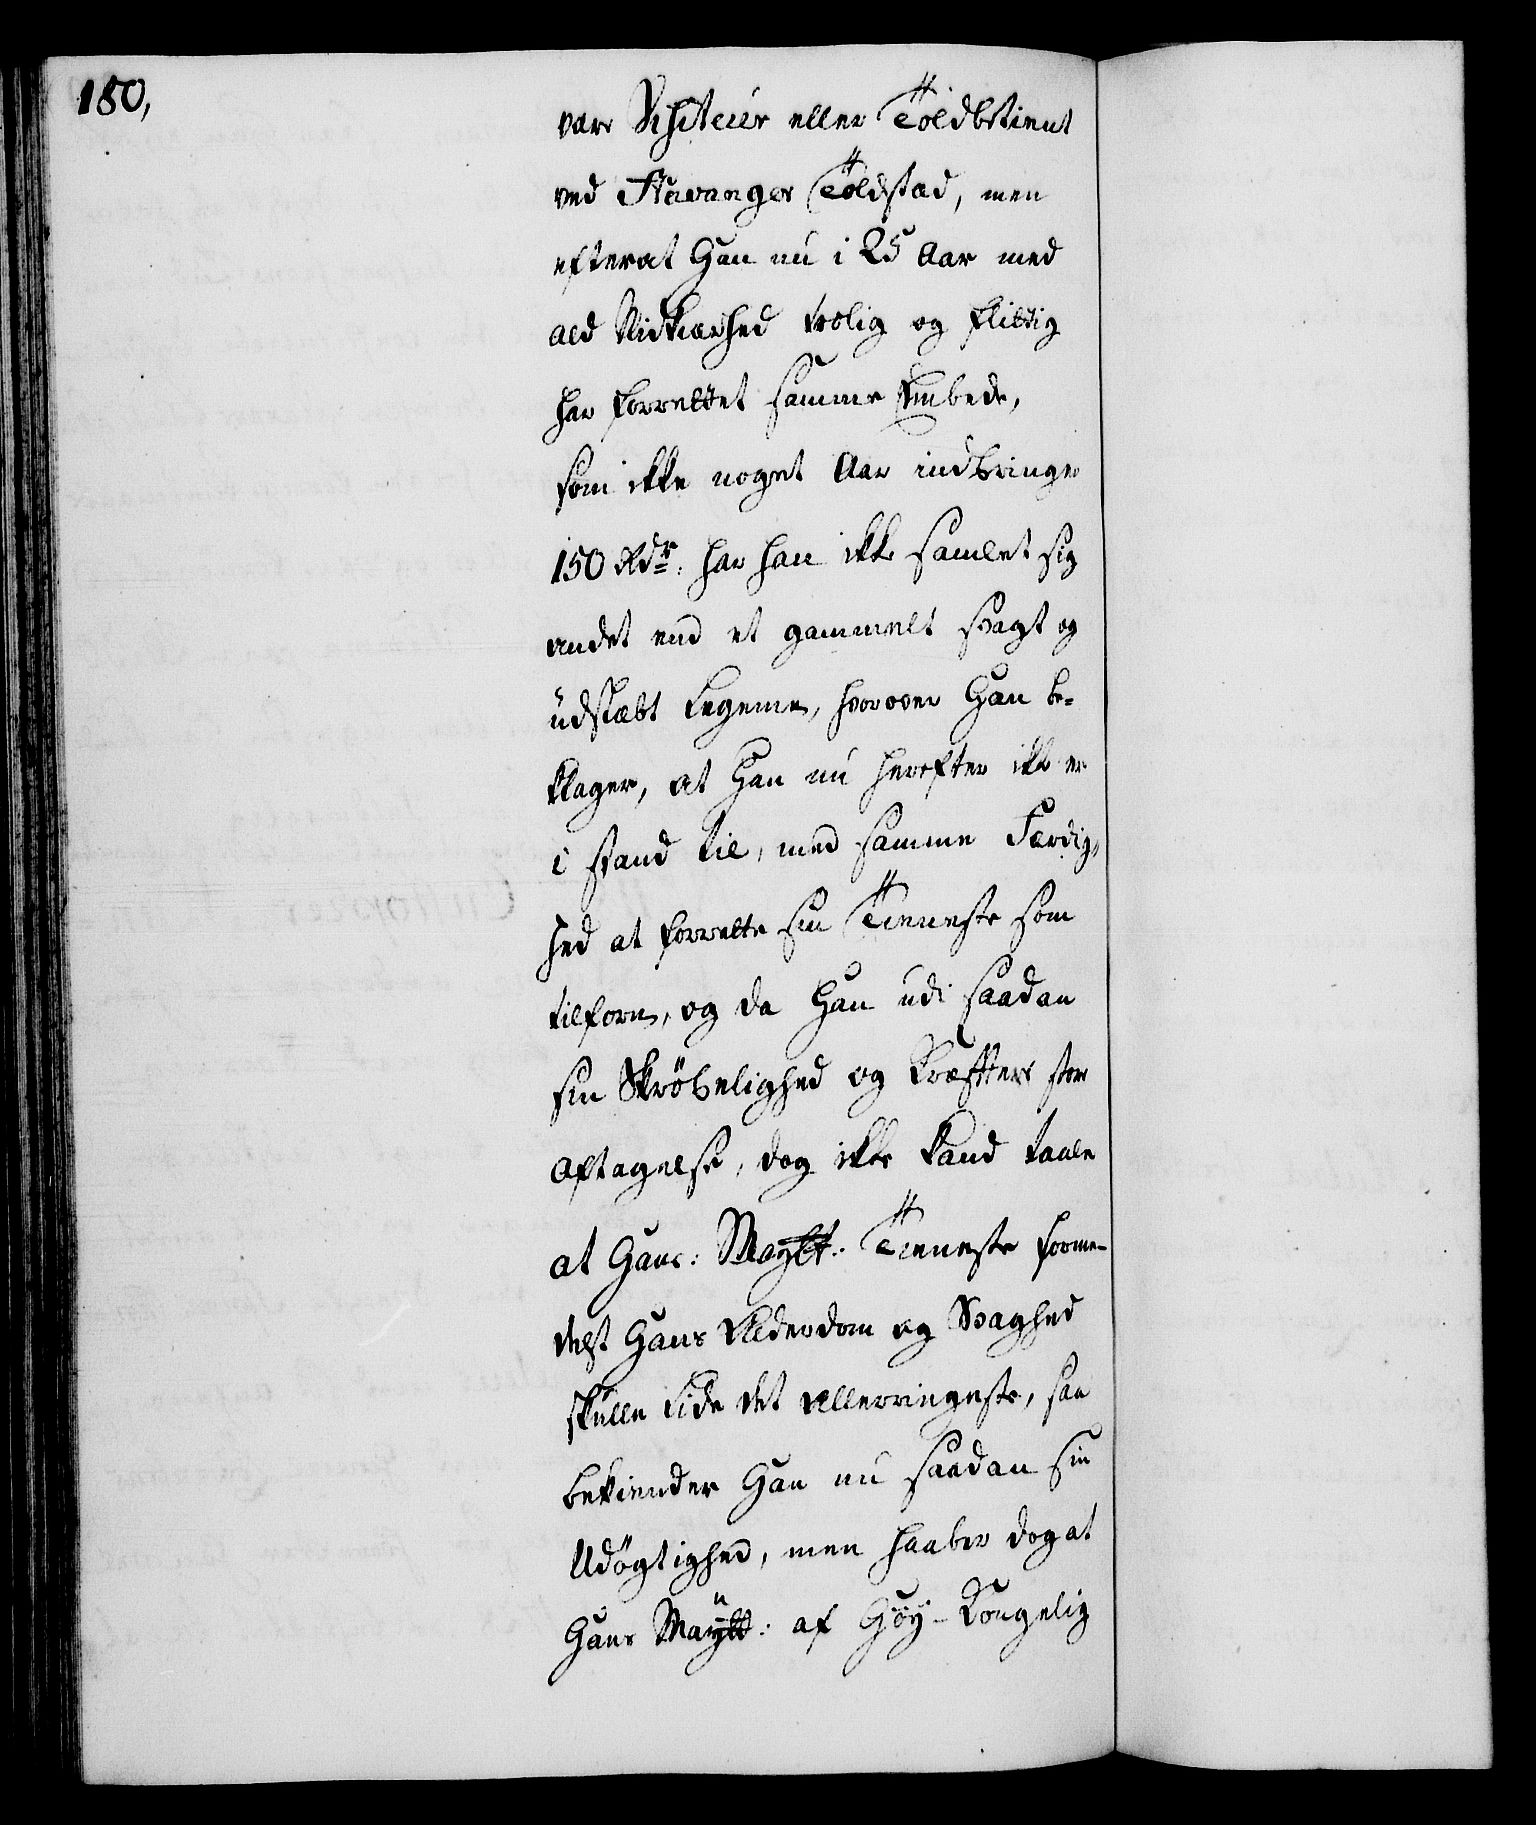 180,
vare Visiteur eller Toldbetient
ved Stavanger Toldstæd, men
efterat Han nu i 25 Aar med
ald Nidkiærhed trolig og flittig
har forrettet samme Embede,
som ikke noget Aar indbringer
150 Rdr: har han ikke samlet sig
andet end et gammelt svagt og
udslæbt Legeme, hvorover Han be-
klager, at Han nu herefter ikke er
i stand til, med samme Færdig,
hed at forrette sin Tieneste som
tilforn, og da Han udi saadan
sin Skrøbelighed og Kræfters stor
Aftagelse, dog ikke kand taale
at Hans: Maytt: Tieneste forme-
delst Hans Alderdom og Svaghed
skulle lide det allerringeste, saa
bekiender Han nu saadan sin
Udøgtighed, men haaber dog at
Hans Maytt: af Høy-Kongelig